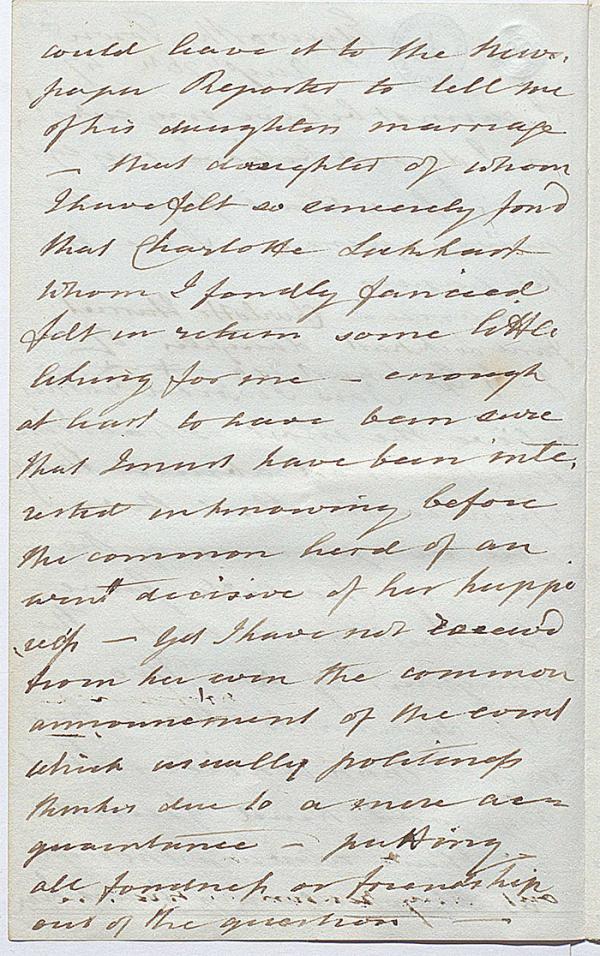 could leave it to the News,
paper Reporter to tell me
of his daughters marriage
— that daughter of whom
I have felt so sincerely fond
that Charlotte Lockhart
whom I fondly fancied
felt in return some little
liking for me — enough
at least to have been sure
that I must have been inte,
rested in knowing before
the common herd of an
event decisive of her happi
ness — yet I have not received
from her even the common
announcement of the event
which usually politeness
thinks due to a mere ac
quaintance — putting
all fondness or friendship
out of the question —